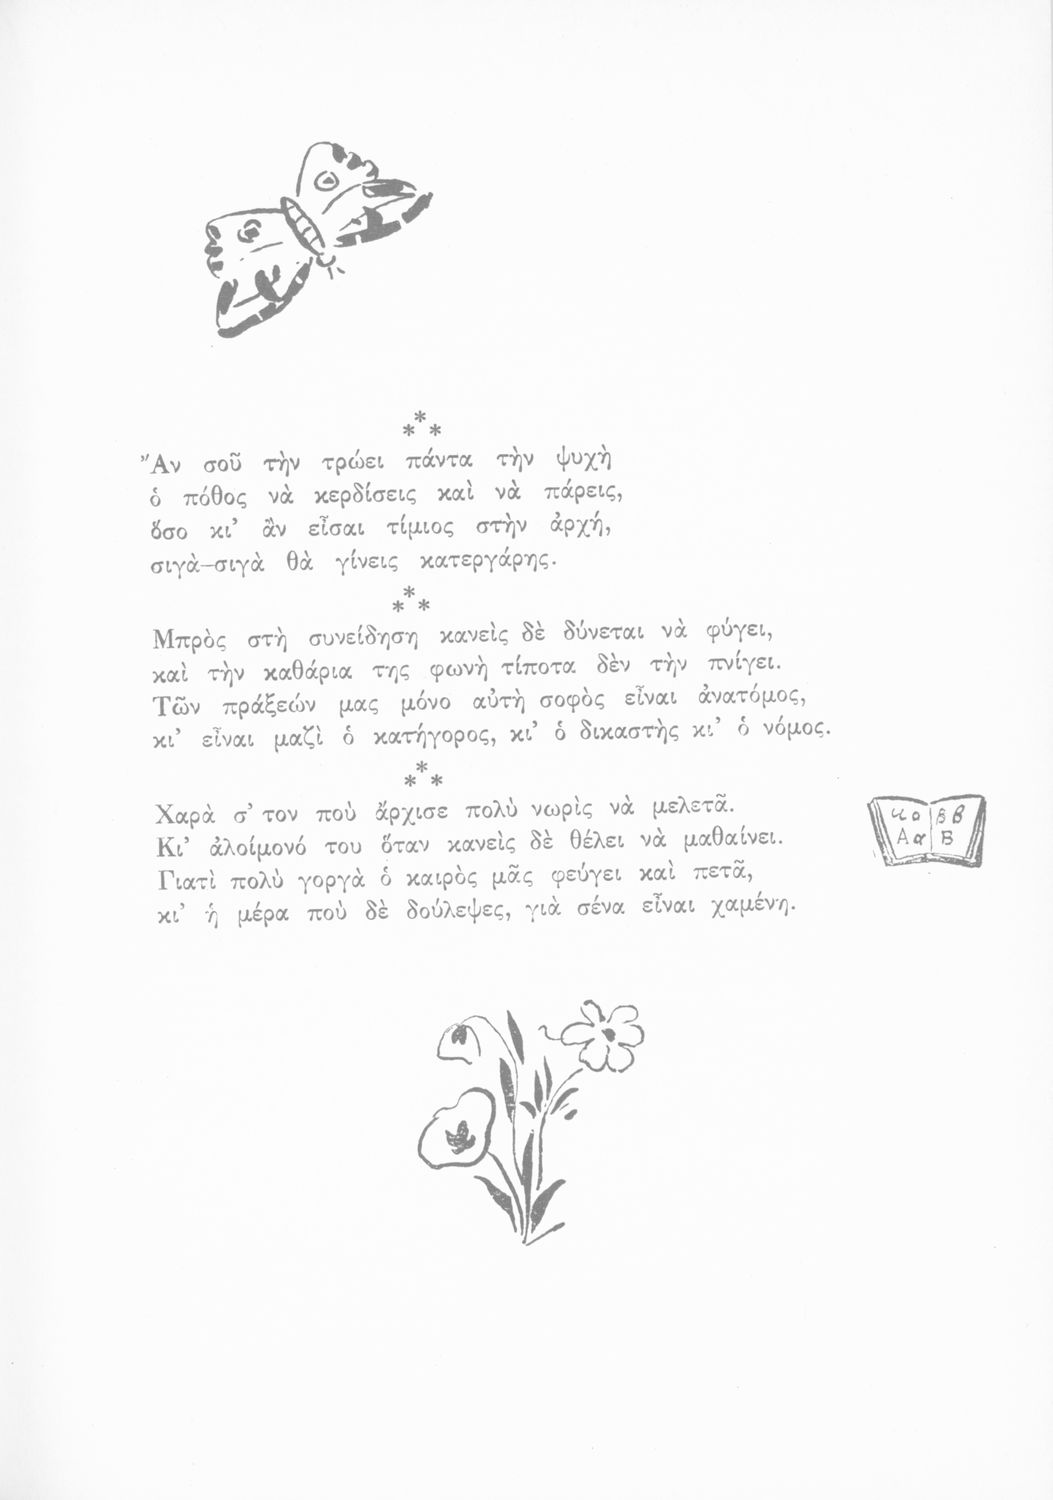 ***
Ἂν σοῦ τὴν τρώει πάντα τὴν ψυχὴ
ὁ πόθος νὰ κερδίσεις καὶ νὰ πάρεις,
ὅσο κι’ ἂν εἶσαι τίμιος στὴν ἀρχή,
σιγὰ-σιγὰ θὰ γίνεις κατεργάρης.
***
Μπρὸς στὴ συνείδηση κανεὶς δὲ δύνεται νὰ φύγει,
καὶ τὴν καθάρια της φωνὴ τίποτα δὲν τὴν πνίγει.
Τῶν πράξεών μας μόνο αὐτὴ σοφὸς εἶναι ἀνατόμος,
κι’ εἶναι μαζὶ ὁ κατήγορος, κι’ ὁ δικαστὴς κι’ ὁ νόμος.
***
Χαρὰ σ’ τον ποὺ ἄρχισε πολὺ νωρὶς νὰ μελετᾶ.
Κι’ ἀλοίμονό του ὅταν κανεὶς δὲ θέλει νὰ μαθαίνει.
Γιατὶ πολὺ γοργὰ ὁ καιρὸς μᾶς φεύγει καὶ πετᾶ,
κι’ ἡ μέρα ποὺ δὲ δούλεψες, γιὰ σένα εἶναι χαμένη.
β β
Α α Β